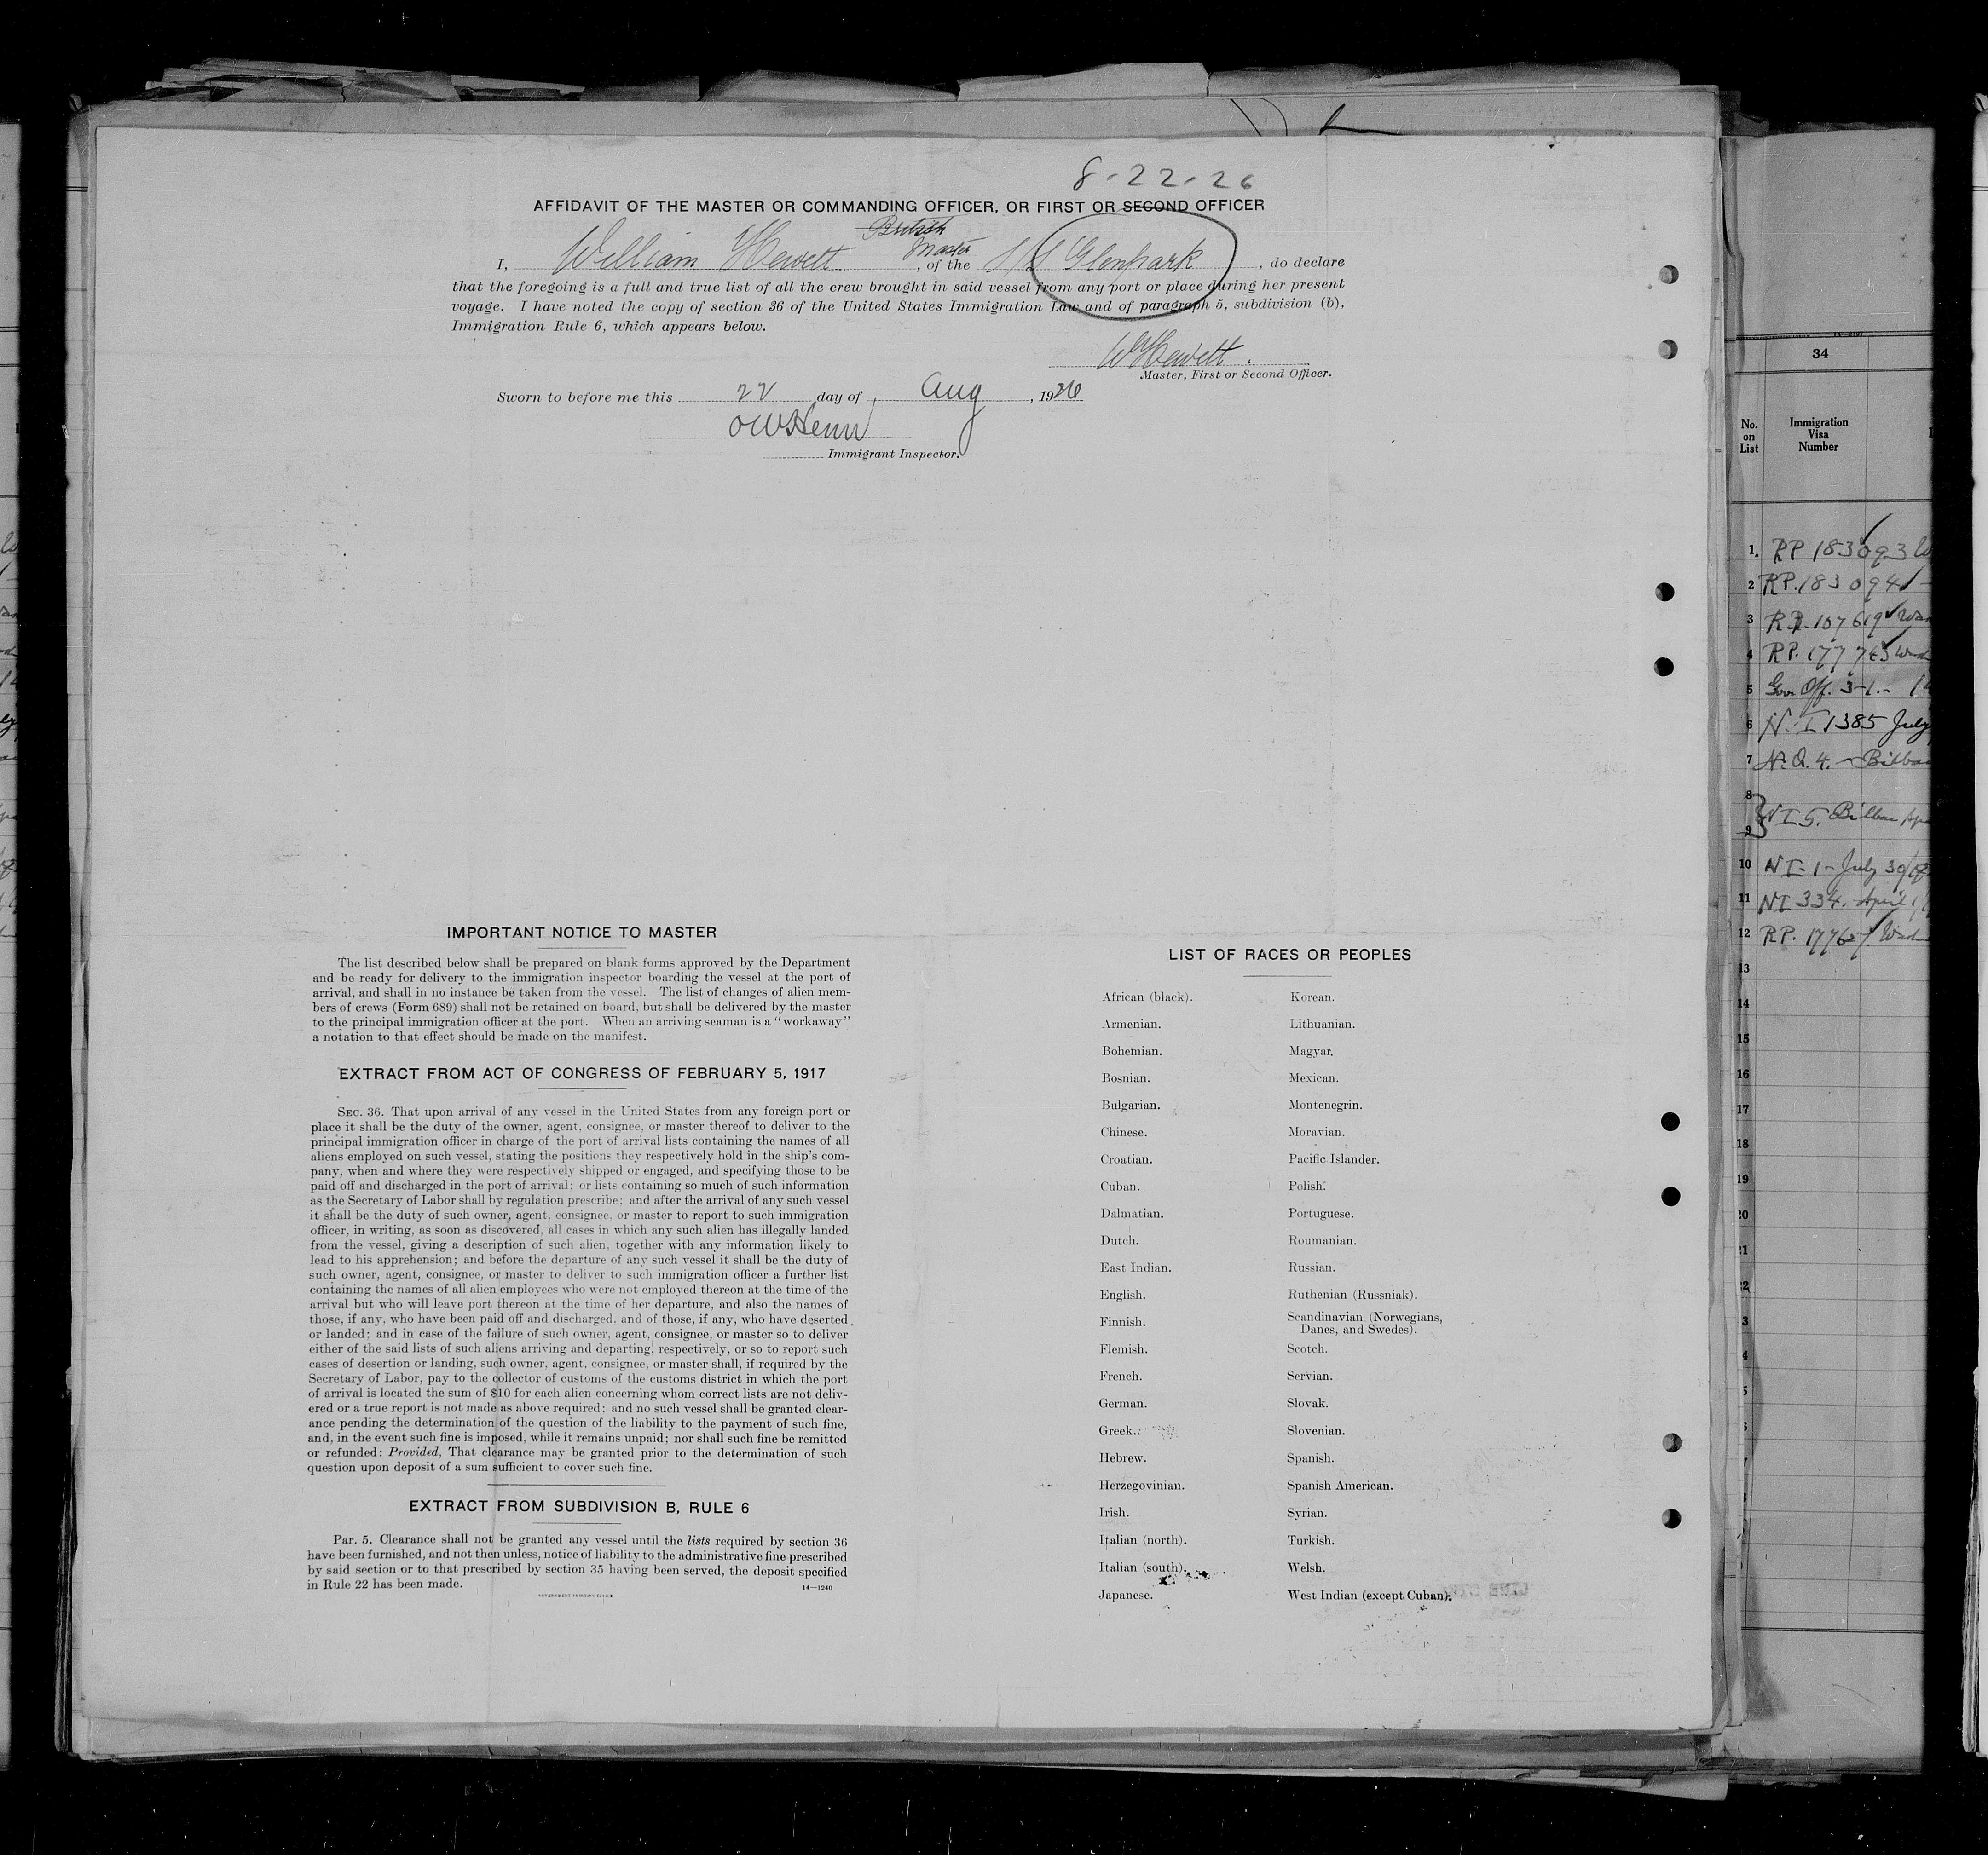 8-22-26
AFFIDAVIT OF THE MASTER OR COMMANDING OFFICER, OR FIRST OR SECOND OFFICER
British
Master
I, William Hewett, of the S/S Glenpark, do declare
that the foregoing is a full and true list of all the crew brought in said vessel from any port or place during her present
voyage. I have noted the copy of section 36 of the United States Immigration Law and of paragraph 5, subdivision (b),
Immigration Rule 6, which appears below.
W Hewett.
Master, First or Second Officer.
Sworn to before me this 22 day of Aug, 1926
Immigrant Inspector.
IMPORTANT NOTICE TO MASTER
The list described below shall be prepared on blank forms approved by the Department
and be ready for delivery to the immigration inspector boarding the vessel at the port of
arrival, and shall in no instance be taken from the vessel. The list of changes of alien mem-
bers of crews (Form 689) shall not be retained on board, but shall be delivered by the master
to the principal immigration officer at the port. When an arriving seaman is a "workaway"
a notation to that effect should be made on the manifest.
EXTRACT FROM ACT OF CONGRESS OF FEBRUARY 5, 1917
SEC. 36. That upon arrival of any vessel in the United States from any foreign port or
place it shall be the duty of the owner, agent, consignee, or master thereof to deliver to the
principal immigration officer in charge of the port of arrival lists containing the names of all
aliens employed on such vessel, stating the positions they respectively hold in the ship's com-
pany, when and where they were respectively shipped or engaged, and specifying those to be
paid off and discharged in the port of arrival; or lists containing so much of such information
as the Secretary of Labor shall by regulation prescribe; and after the arrival of any such vessel
it shall be the duty of such owner, agent, consignee, or master to report to such immigration
officer, in writing, as soon as discovered, all cases in which any such alien has illegally landed
from the vessel, giving a description of such alien, together with any information likely to
lead to his apprehension; and before the departure of any such vessel it shall be the duty of
such owner, agent, consignee, or master to deliver to such immigration officer a further list
containing the names of all alien employees who were not employed thereon at the time of the
arrival but who will leave port thereon at the time of her departure, and also the names of
those, if any, who have been paid off and discharged, and of those, if any, who have deserted
or landed; and in case of the failure of such owner, agent, consignee, or master so to deliver
either of the said lists of such aliens arriving and departing, respectively, or so to report such
cases of desertion or landing, such owner, agent, consignee, or master shall, if required by the
Secretary of Labor, pay to the collector of customs of the customs district in which the port
of arrival is located the sum of $10 for each alien concerning whom correct lists are not deliv-
ered or a true report is not made as above required; and no such vessel shall be granted clear-
ance pending the determination of the question of the liability to the payment of such fine,
and, in the event such fine is imposed, while it remains unpaid; nor shall such fine be remitted
or refunded: Provided, That clearance may be granted prior to the determination of such
question upon deposit of a sum sufficient to cover such fine.
EXTRACT FROM SUBDIVISION B, RULE 6
Par. 5. Clearance shall not be granted any vessel until the lists required by section 36
have been furnished, and not then unless, notice of liability to the administrative fine prescribed
by said section or to that prescribed by section 35 having been served, the deposit specified
in Rule 22 has been made.
14—1240
GOVERNMENT PRINTING OFFICE
LIST OF RACES OR PEOPLES
African (black). Korean.
Armenian. Lithuanian.
Bohemian. Magyar.
Bosnian. Mexican.
Bulgarian. Montenegrin.
Chinese. Moravian.
Croatian. Pacific Islander.
Cuban. Polish.
Dalmatian. Portuguese.
Dutch. Roumanian.
East Indian. Russian.
English. Ruthenian (Russniak).
Finnish. Scandinavian (Norwegians,
Danes, and Swedes).
Flemish. Scotch.
French. Servian.
German. Slovak.
Greek. Slovenian.
Hebrew. Spanish.
Herzegovinian. Spanish American.
Irish. Syrian.
Italian (north). Turkish.
Italian (south). Welsh.
Japanese. West Indian (except Cuban).
34
No.
on
List
Immigration
Visa
Number
1. RP 183093
2 RP. 183094
3 RP. 107619
4 RP. 177
5 Gov. Off. 3-1.-
6 N.I 1385 July
7 4. - Bilbao
8
9 NI 5. Bilbao
10 NI-1- July 30
11 NI 334. April
12 RP.
13
14
15
16
17
18
19
20
21